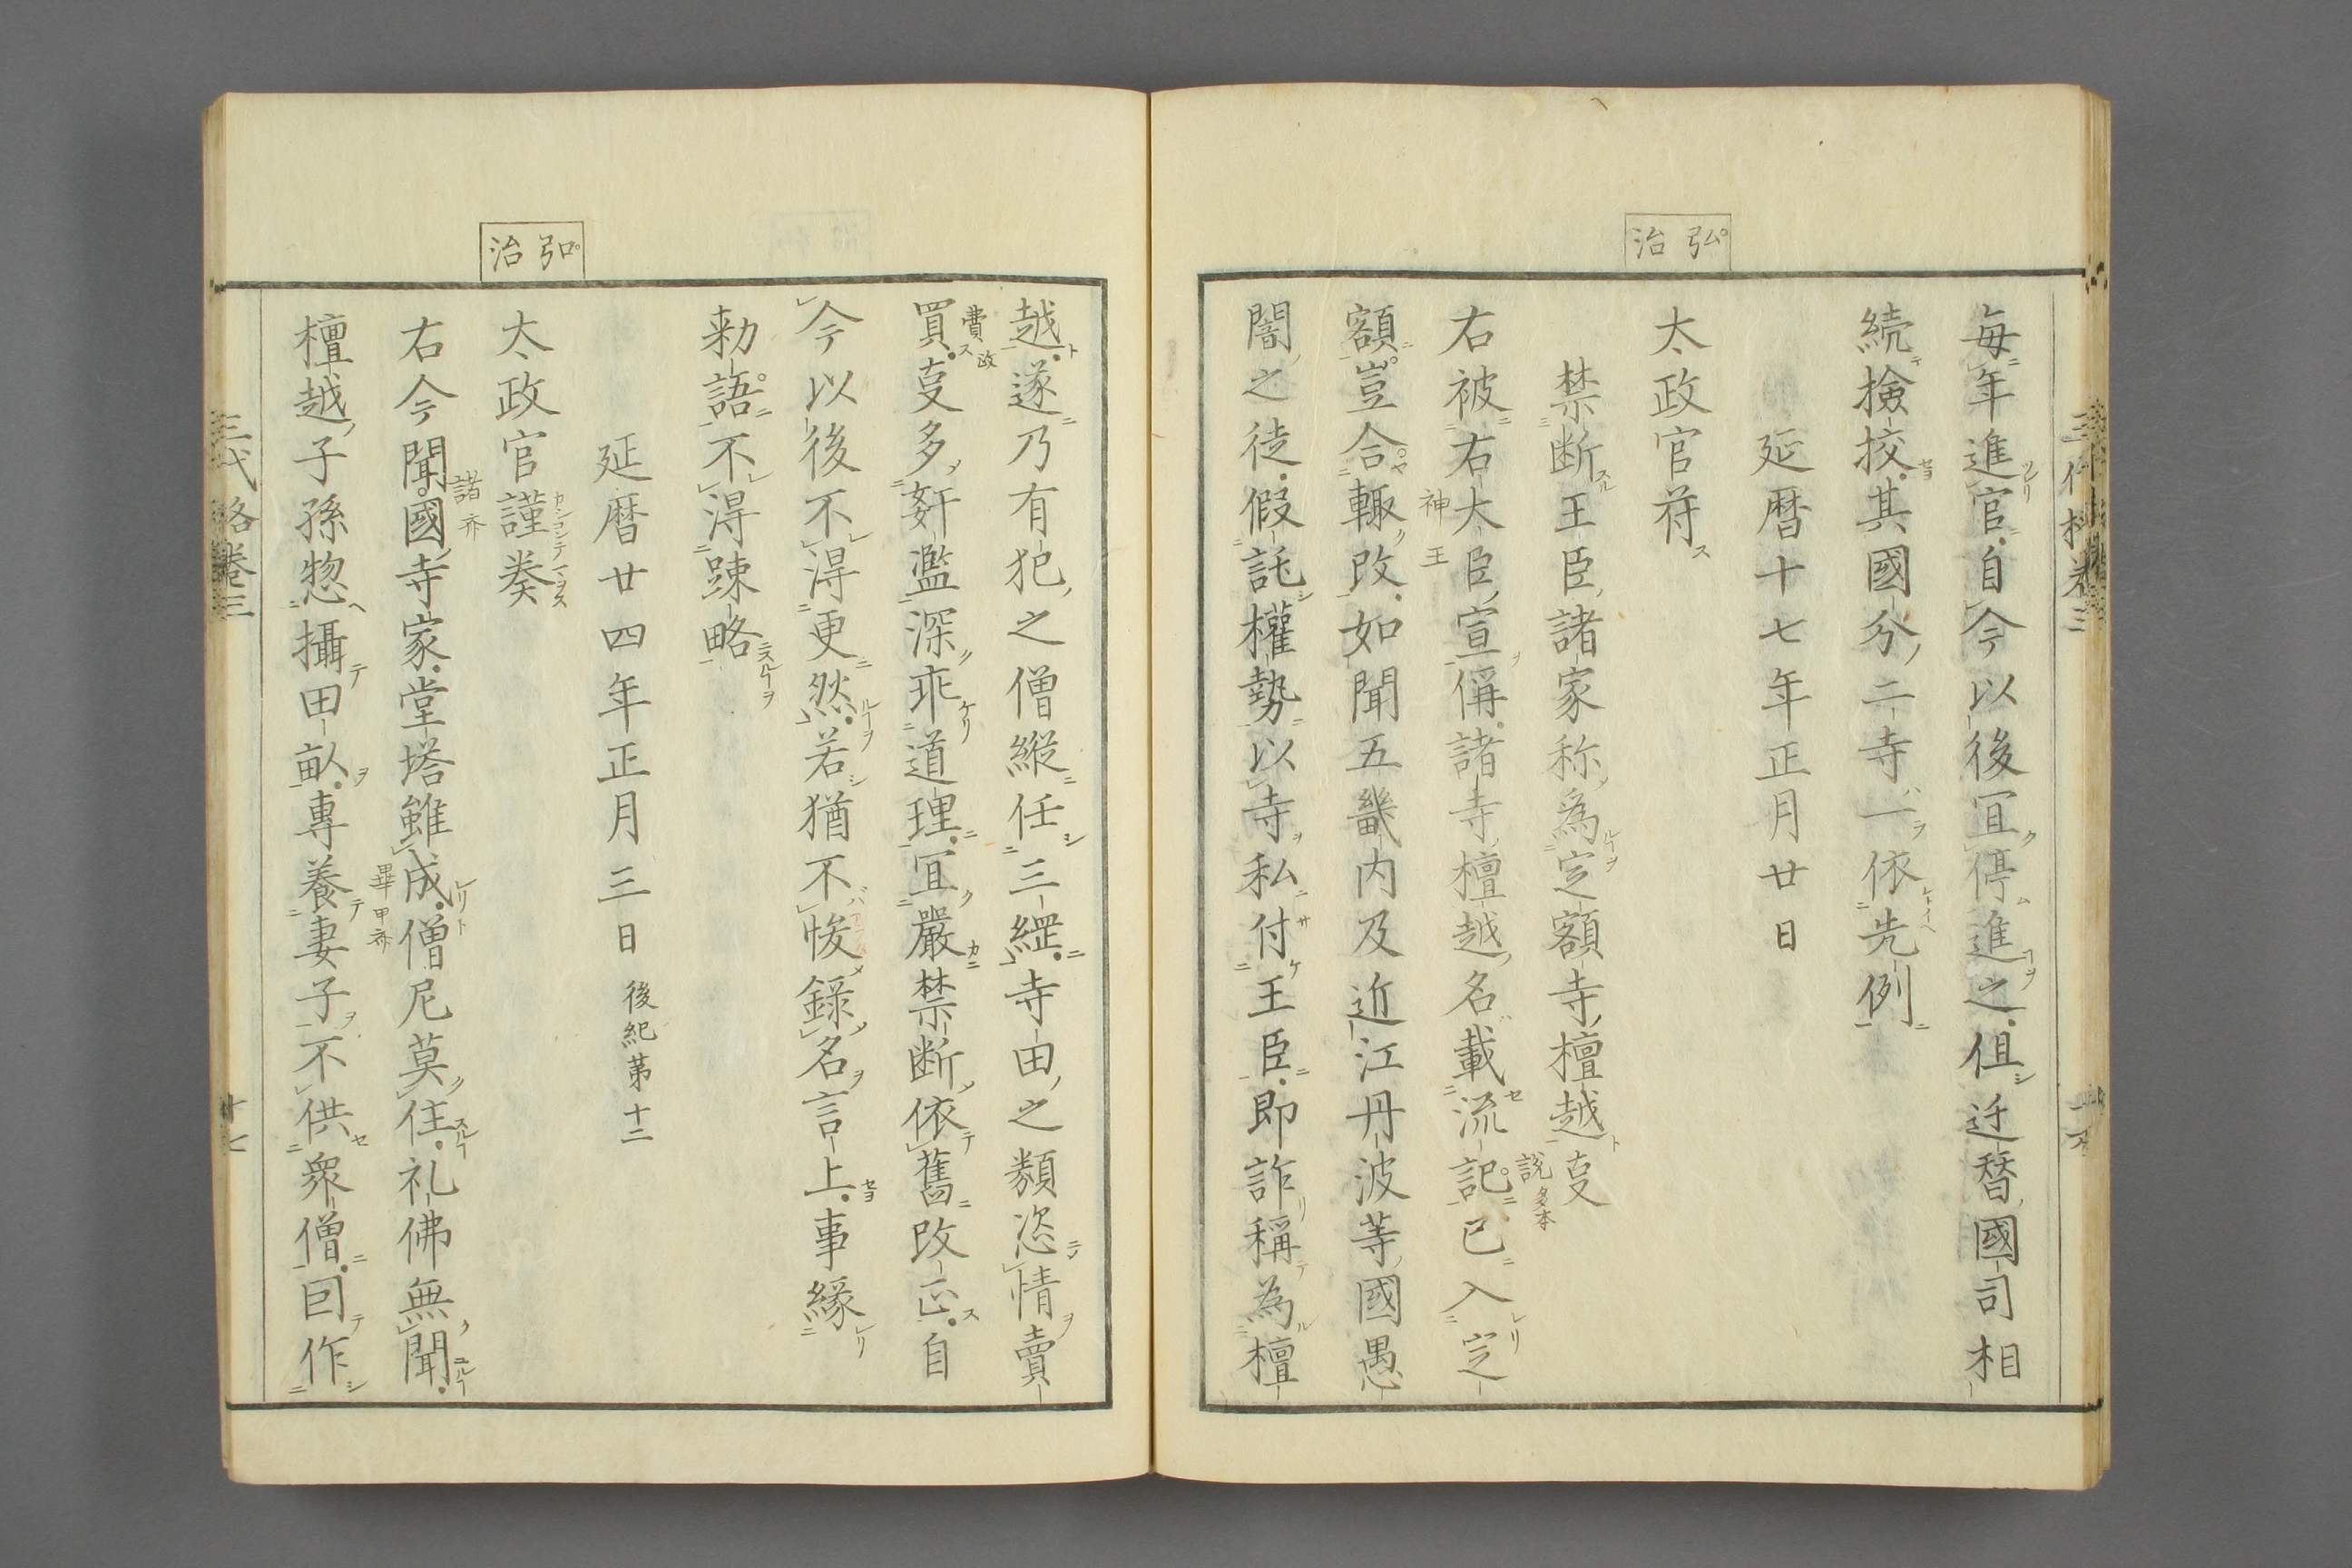 弘治
毎年進官自今以後冝停進之但迁替國司相
続撿挍其國分二寺一依先例
延暦十七年正月廿日
太政官符
禁断王臣諸家称為定額寺檀越㕝
説多本
右被右大臣宣偁諸寺檀越名載流記已入定
神王
額豈合輙改如聞五畿内及近江丹波等國愚
闇之徒假託權勢以寺私付王臣即詐稱為檀
三代格卷三
弘治
越遂乃有犯之僧縦任三綱寺田之類恣情賣
費改
買㕝多奸濫深乖道理冝嚴禁断依舊改正自
今以後不得更然若猶不悛録名言上事緣
勅語不得踈略
延暦廿四年正月三日 後紀第十二
太政官謹奏
諸亦
右今聞國寺家堂塔雖成僧尼莫住礼佛無聞
畢甲亦
檀越子孫惣攝田畝專養妻子不供衆僧囙作
三代格卷三
十七